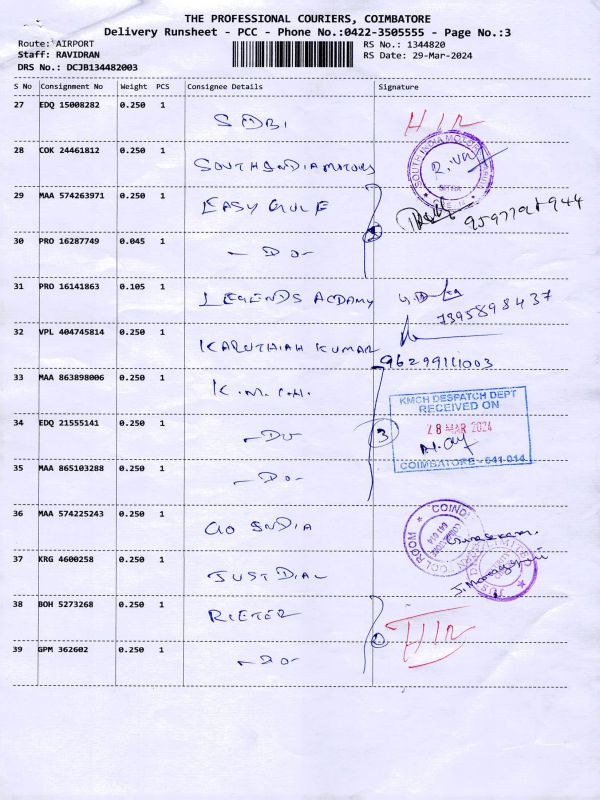 THE PROFESSIONAL COURIERS, COIMBATORE
Delivery Runsheet - PCC - Phone No.:0422-3505555 - Page No.:3
Route: AIRPORT
RS No.: 1344820
Staff: RAVIDRAN
RS Date: 29-Mar-2024
DRS No.: DCJB134482003
S No Consignment No Weight PCS Consignee Details Signature
27 EDQ 15008282 0.250 1 SDBI HIR
28 COK 24461812 0.250 1 SOUTH INDIA MOTORS
SOUTH INDIA MOTOR
SITRA
29 MAA 574263971 0.250 1 EASY GULF
30 PRO 16287749 0.045 1 - DO -
31 PRO 16141863 0.105 1 LEGENDS ACDAMY
7395898437
32 VPL 404745814 0.250 1 KARUTHIAH KUMAR
33 MAA 863898006 0.250 1 K.M.C.H.
KMCH DESPATCH DEPT
RECEIVED ON
28 MAR 2024
COIMBATORE - 641 014
34 EDQ 21555141 0.250 1 - DO - 3
35 MAA 865103288 0.250 1 - DO -
36 MAA 574225243 0.250 1 GO INDIA
37 KRG 4600258 0.250 1 JUST DIAL
38 BOH 5273268 0.250 1 RIETER HIR
39 GPM 362602 0.250 1 - DO -